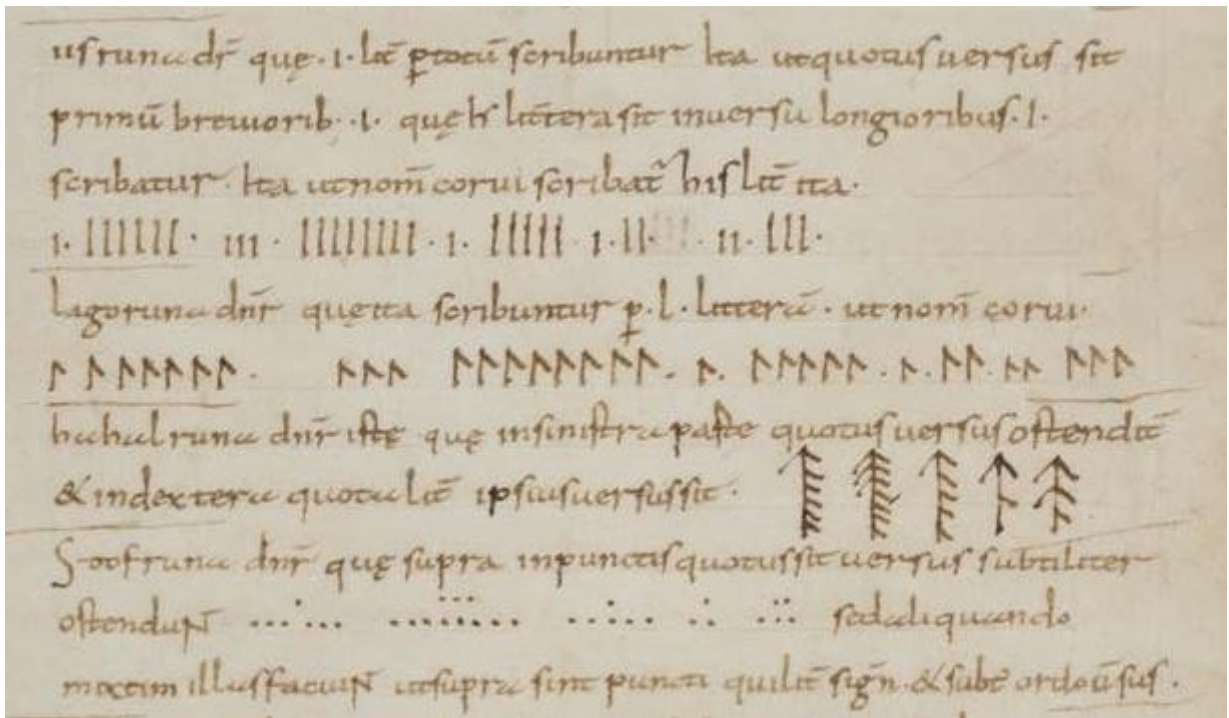 usruna dr̄ quę · i · lit̄ ꝑtotū scribuntur Ita utquotus uersus sit
primū breuiorib · · i · quęh littera sit inuersu longioribus · l ·
scribatur · Ita utnom̄ corui scribat̄ his lit̄ ita ·
ı · llllll · ııı · llllllll · ı · lllll · ı · ll · ıı · lll ·
lagoruna dnr̄ quęita scribuntur ꝑ · l · litterā · ut nom̄ corui ·
ᛚ ᛚᛚᛚᛚᛚᛚ · ᛚᛚᛚ ᛚᛚᛚᛚᛚᛚᛚᛚ · ᛚ · ᛚᛚᛚᛚᛚ · ᛚ · ᛚᛚ · ᛚᛚ ᛚᛚᛚ
hahalruna dnr̄ istę quę insinistra parte quotus uersus ostendit̄
& indextera quota lit̄ ipsius uersus sit ·
Stofruna dnr̄ quę supra inpunctis quotus sit uersus subtiliter
ostenduN̄ sed aliquando
mixtim illas faciuN̄ ut supra sint puncti qui lit̄ sign̄ · & subt̄ ordo ūsus ·